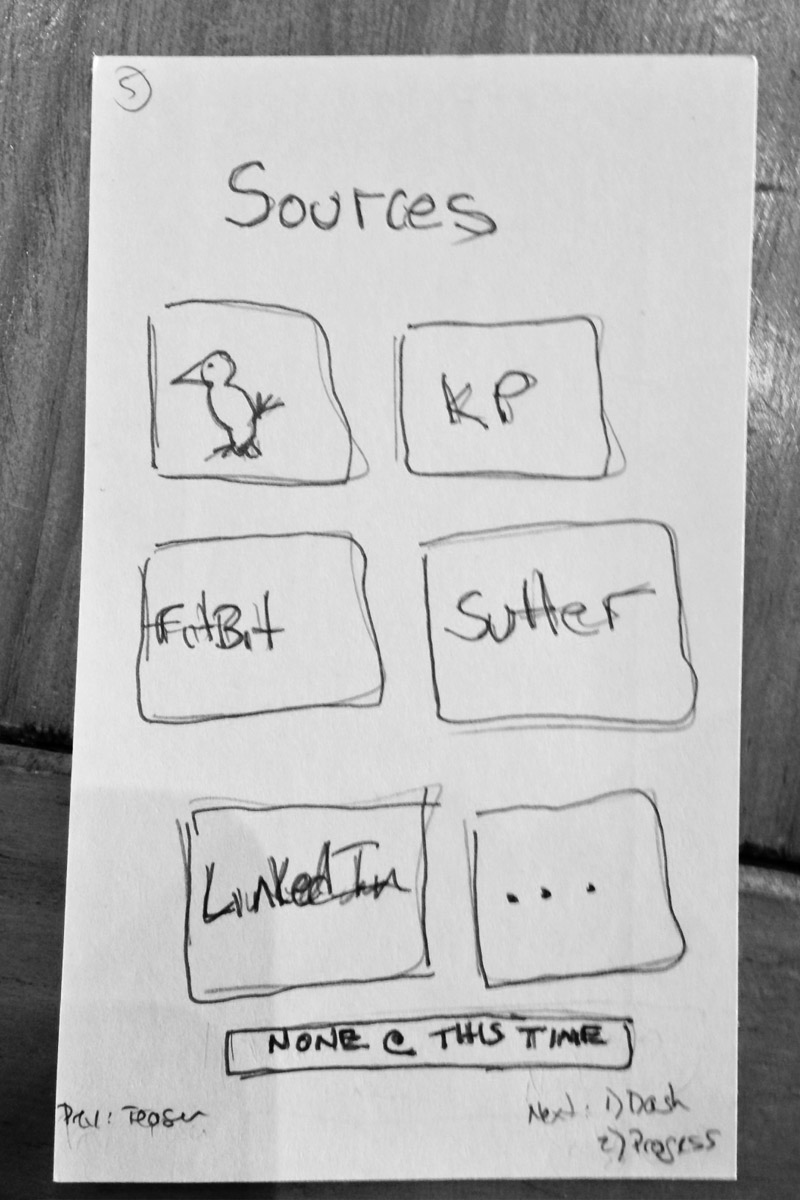 5
Sources
KP
FitBit
Sutter
LinkedIn
...
NONE @ THIS TIME
Prev: Teaser
Next: 1) Dash
2) Progress